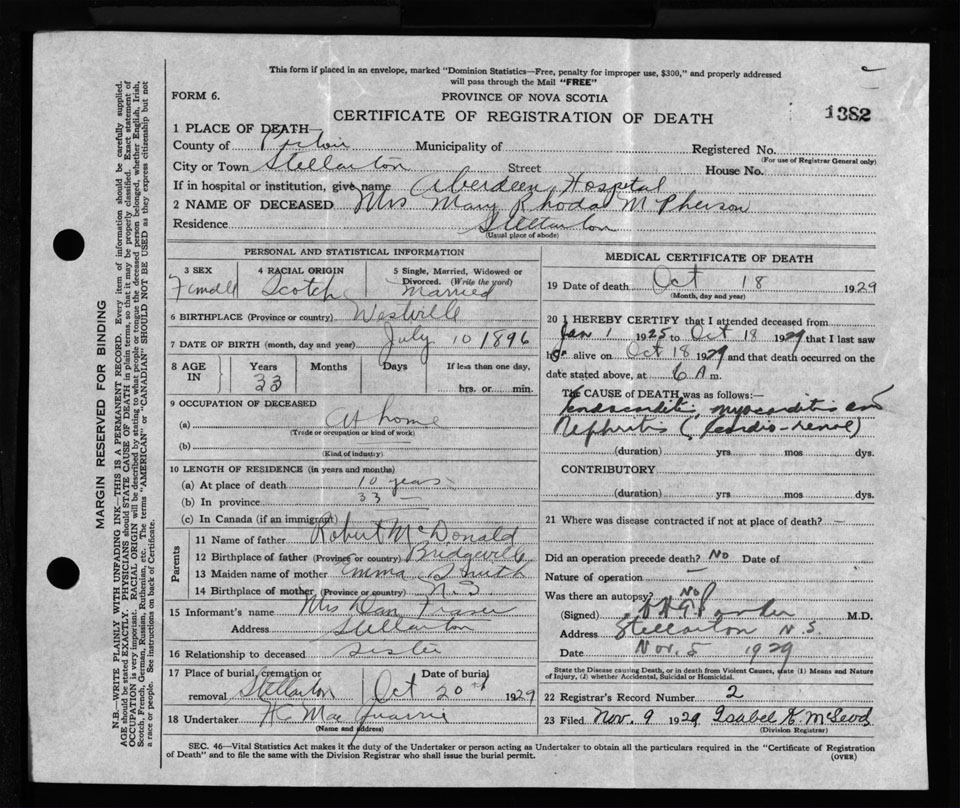 This form if placed in an envelope, marked "Dominion Statistics—Free, penalty for improper use, $300," and properly addressed
will pass through the Mail "FREE"
FORM 6.
PROVINCE OF NOVA SCOTIA
CERTIFICATE OF REGISTRATION OF DEATH
1382
1 PLACE OF DEATH
County of Pictou Municipality of Registered No.
(For use of Registrar General only)
City or Town Stellarton Street House No.
If in hospital or institution, give name Aberdeen Hospital
2 NAME OF DECEASED Mrs Mary Rhoda McPherson
Residence Stellarton
(Usual place of abode)
PERSONAL AND STATISTICAL INFORMATION
3 SEX 4 RACIAL ORIGIN 5 Single, Married, Widowed or
Divorced. (Write the word)
Female Scotch Married
6 BIRTHPLACE (Province or country) Westville
7 DATE OF BIRTH (month, day and year) July 10 1896
8 AGE IN Years Months Days If less than one day,
33 hrs. or min.
9 OCCUPATION OF DECEASED
(a) At home
(Trade or occupation or kind of work)
(b)
(Kind of industry)
10 LENGTH OF RESIDENCE (in years and months)
(a) At place of death 10 years
(b) In province 33 —
(c) In Canada (if an immigrant)
Parents
11 Name of father Robert McDonald
12 Birthplace of father (Province or country) Bridgeville
13 Maiden name of mother Emma Smith
14 Birthplace of mother (Province or country) N.S
15 Informant's name Mrs Dan Fraser
Address Stellarton
16 Relationship to deceased Sister
17 Place of burial, cremation or Date of burial
removal Stellarton Oct 20th 1929
18 Undertaker MacQuarrie
(Name and address)
MEDICAL CERTIFICATE OF DEATH
19 Date of death Oct 18 1929
(Month, day and year)
20 I HEREBY CERTIFY that I attended deceased from
Jan 1 1925 to Oct 18 1929 that I last saw
her alive on Oct 18 1929 and that death occurred on
date stated above, at 6 A m.
The CAUSE of DEATH was as follows:—
Endocarditis, myocarditis and
Nephritis (Cardio-renal)
(duration) yrs mos dys.
CONTRIBUTORY
(duration) yrs mos dys.
21 Where was disease contracted if not at place of death? —
Did an operation precede death? No Date of
Nature of operation —
Was there an autopsy? No
(Signed) M.D.
Address Stellarton N.S.
Date Nov. 5 1929
State the Disease causing Death, or in death from Violent Causes, state (1) Means and Nature
of Injury, (2) whether Accidental, Suicidal or Homicidal.
22 Registrar's Record Number 2
23 Filed Nov. 9 1929 Isabel K. McLeod
(Division Registrar)
SEC. 46—Vital Statistics Act makes it the duty of the Undertaker or person acting as Undertaker to obtain all the particulars required in the "Certificate of Registration
of Death" and to file the same with the Division Registrar who shall issue the burial permit.
(OVER)
MARGIN RESERVED FOR BINDING
N.B.—WRITE PLAINLY WITH UNFADING INK—THIS IS A PERMANENT RECORD. Every item of information should be carefully supplied.
AGE should be stated EXACTLY. PHYSICIANS should STATE CAUSE OF DEATH in plain terms, so that it may be properly classified. Exact statement of
OCCUPATION is very important. RACIAL ORIGIN will be described by stating to what people or tongue the deceased person belonged, whether English, Irish,
Scotch, French, German, Russian, Ruthenian, etc. The terms "AMERICAN" or "CANADIAN" SHOULD NOT BE USED as they express citizenship but not
a race or people. See instructions on back of Certificate.